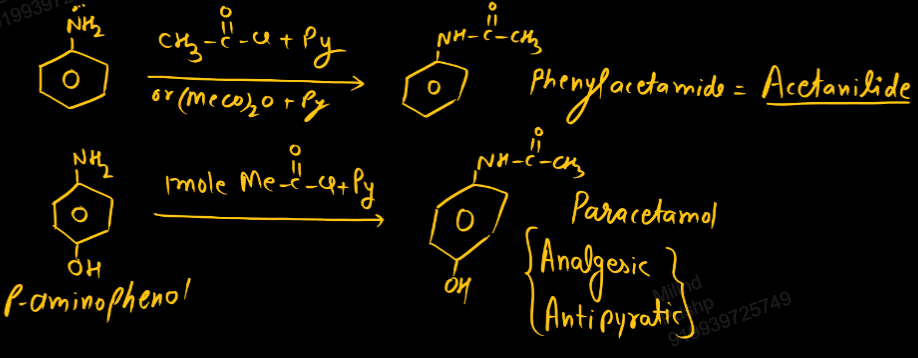 NH2
CH3-C-Cl + Py
O
or (MeCO)2O + Py
NH-C-CH3
O
Phenylacetamide = Acetanilide
NH2
OH
P-aminophenol
1mole Me-C-Cl+Py
O
NH-C-CH3
O
OH
Paracetamol
{Analgesic
Antipyratic}
919939725749